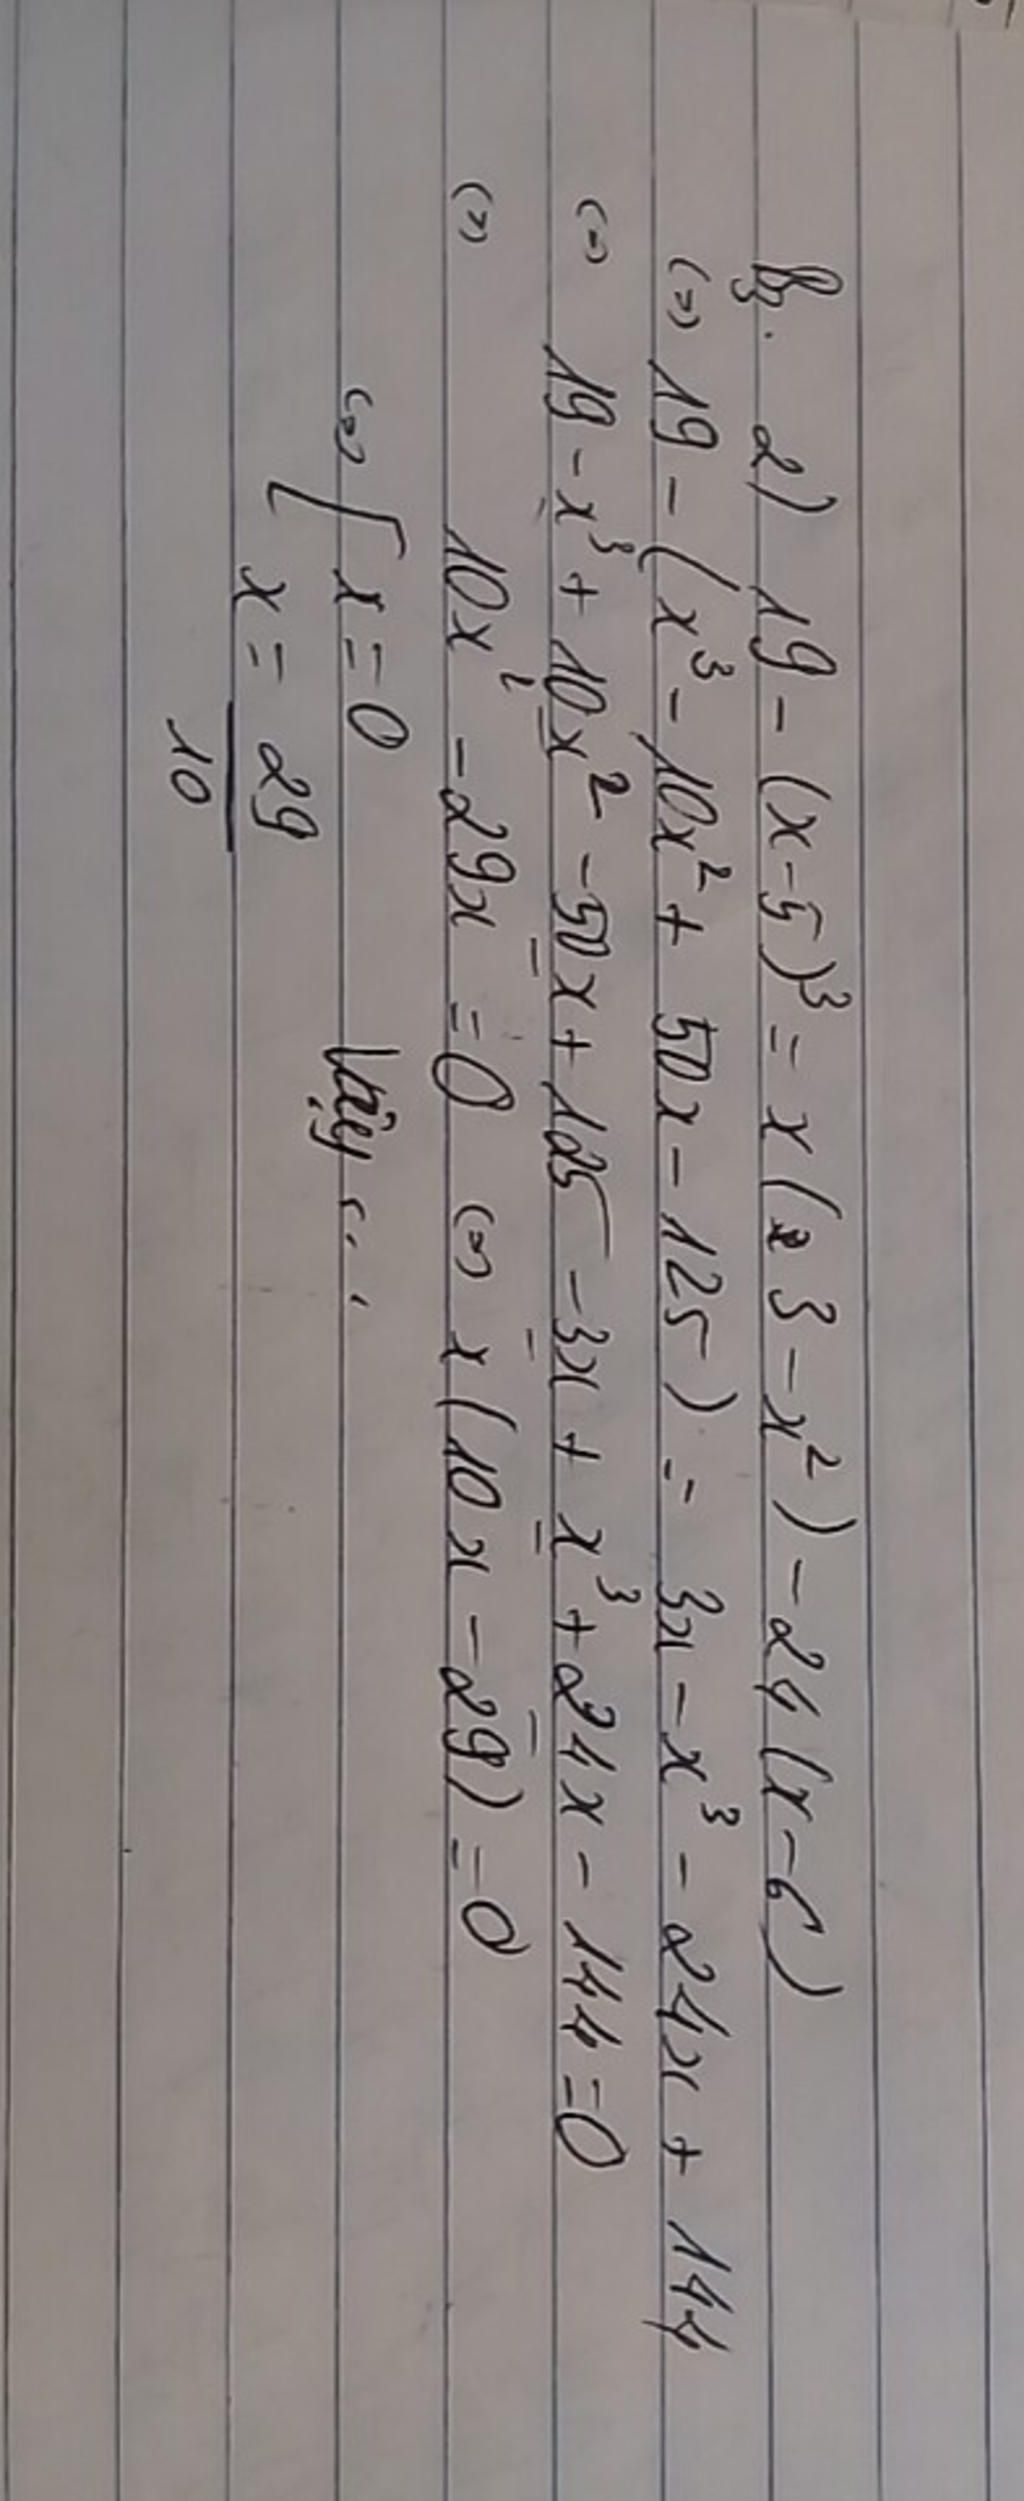 B3. 2) 19 - (x-5)³ = x(3 - x²) - 24(x-6)
(=) 19 - (x³ - 10x² + 50x - 125) = 3x - x³ - 24x + 144
(=) 19 - x³ + 10x² - 50x + 125 - 3x + x³ + 24x - 144 = 0
(=) 10x² - 29x = 0 (=) x(10x - 29) = 0
(=) [ x = 0 Vậy ...
x = 29
10